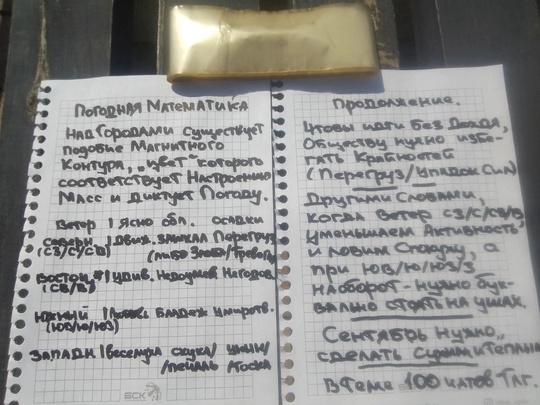 Погодная Математика
Над Городами существует
подобие Магнитного
Контура, "цвет" которого
соответствует Настроению
Масс и диктует Погоду.
Ветер | Ясно обл. осадки
Северн | Движ. Перегруз
(СЗ/С/СВ) (либо Злоба/Тревога)
Восточн | Удив. Недоумен Негодов
(СВ/В)
Южный | Блажен Умиротв.
(ЮВ/Ю/ЮЗ)
Западн | Веселуха скука/ Уныни/
/печаль Тоска
БСК
Продолжение.
Чтобы идти без Дождя,
Обществу нужно избе-
гать Крайностей
(Перегруз/Упадок Сил)
Другими Словами,
когда Ветер СЗ/С/СВ/В
Уменьшаем Активность,
и ловим Скуку, а
при ЮВ/Ю/ЮЗ/З
наоборот - нужно бук-
вально стоять на ушах.
Сентябрь нужно
сделать Сухим и Теплым
БСК
В Теме 100 чатов Тлг.